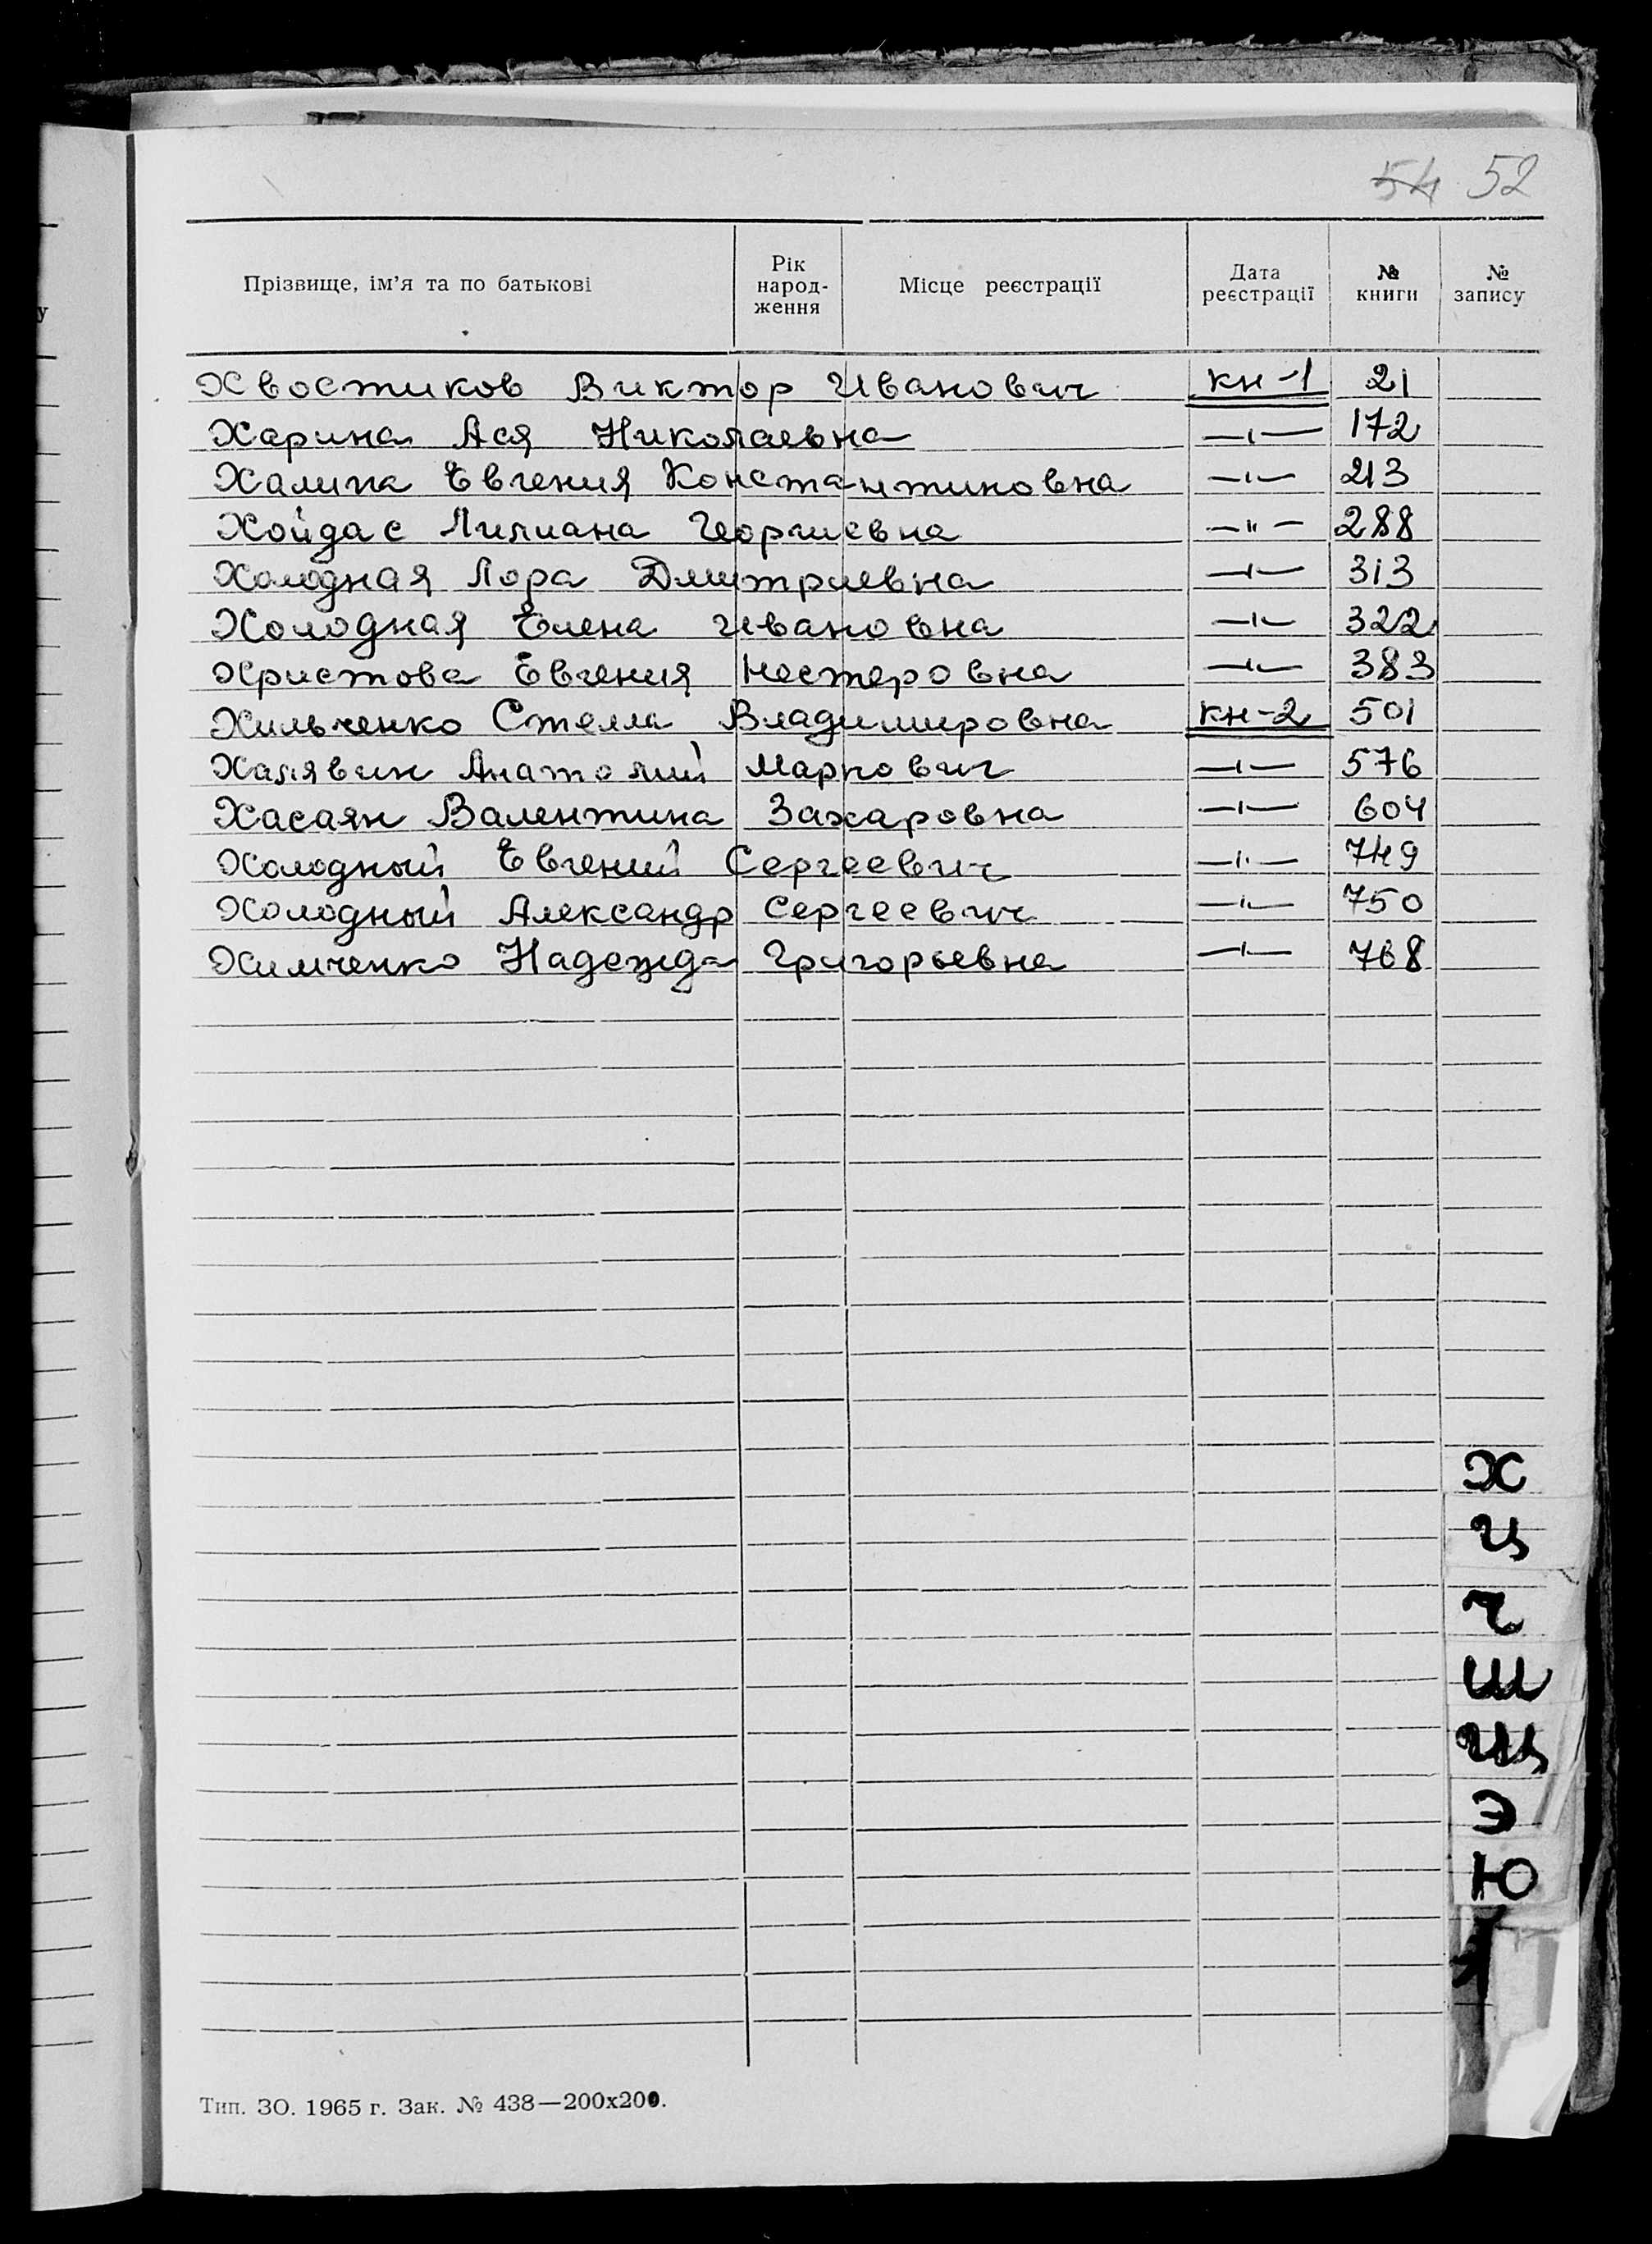 54 52
Прізвище, ім'я та по батькові Рік народ- ження Місце реєстрації Дата реєстрації № книги № запису
Хвостиков Виктор Иванович кн-1 21
Харина Ася Николаевна —"— 172
Халипа Евгения Константиновна —"— 213
Хойдас Лилиана Георгиевна —"— 288
Холодная Лора Дмитриевна —"— 313
Холодная Елена Ивановна —"— 322
Христова Евгения Нестеровна —"— 383
Хильченко Стелла Владимировна кн-2 501
Халявин Анатолий Маркович —"— 576
Хасаян Валентина Захаровна —"— 604
Холодный Евгений Сергеевич —"— 749
Холодный Александр Сергеевич —"— 750
Химченко Надежда Григорьевна —"— 768
Х
Ц
Ч
Ш
Щ
Э
Ю
Тип. ЗО. 1965 г. Зак. № 438—200х200.